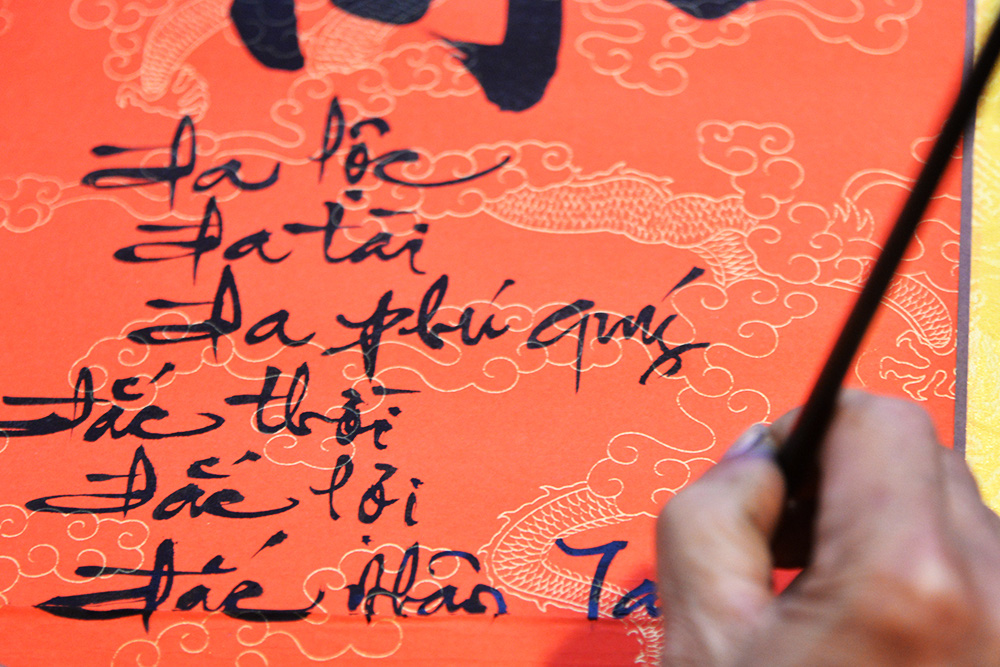 đa lộc
đa tài
đa phú quý
đắc thời
đắc lời
đắc nhân Ta